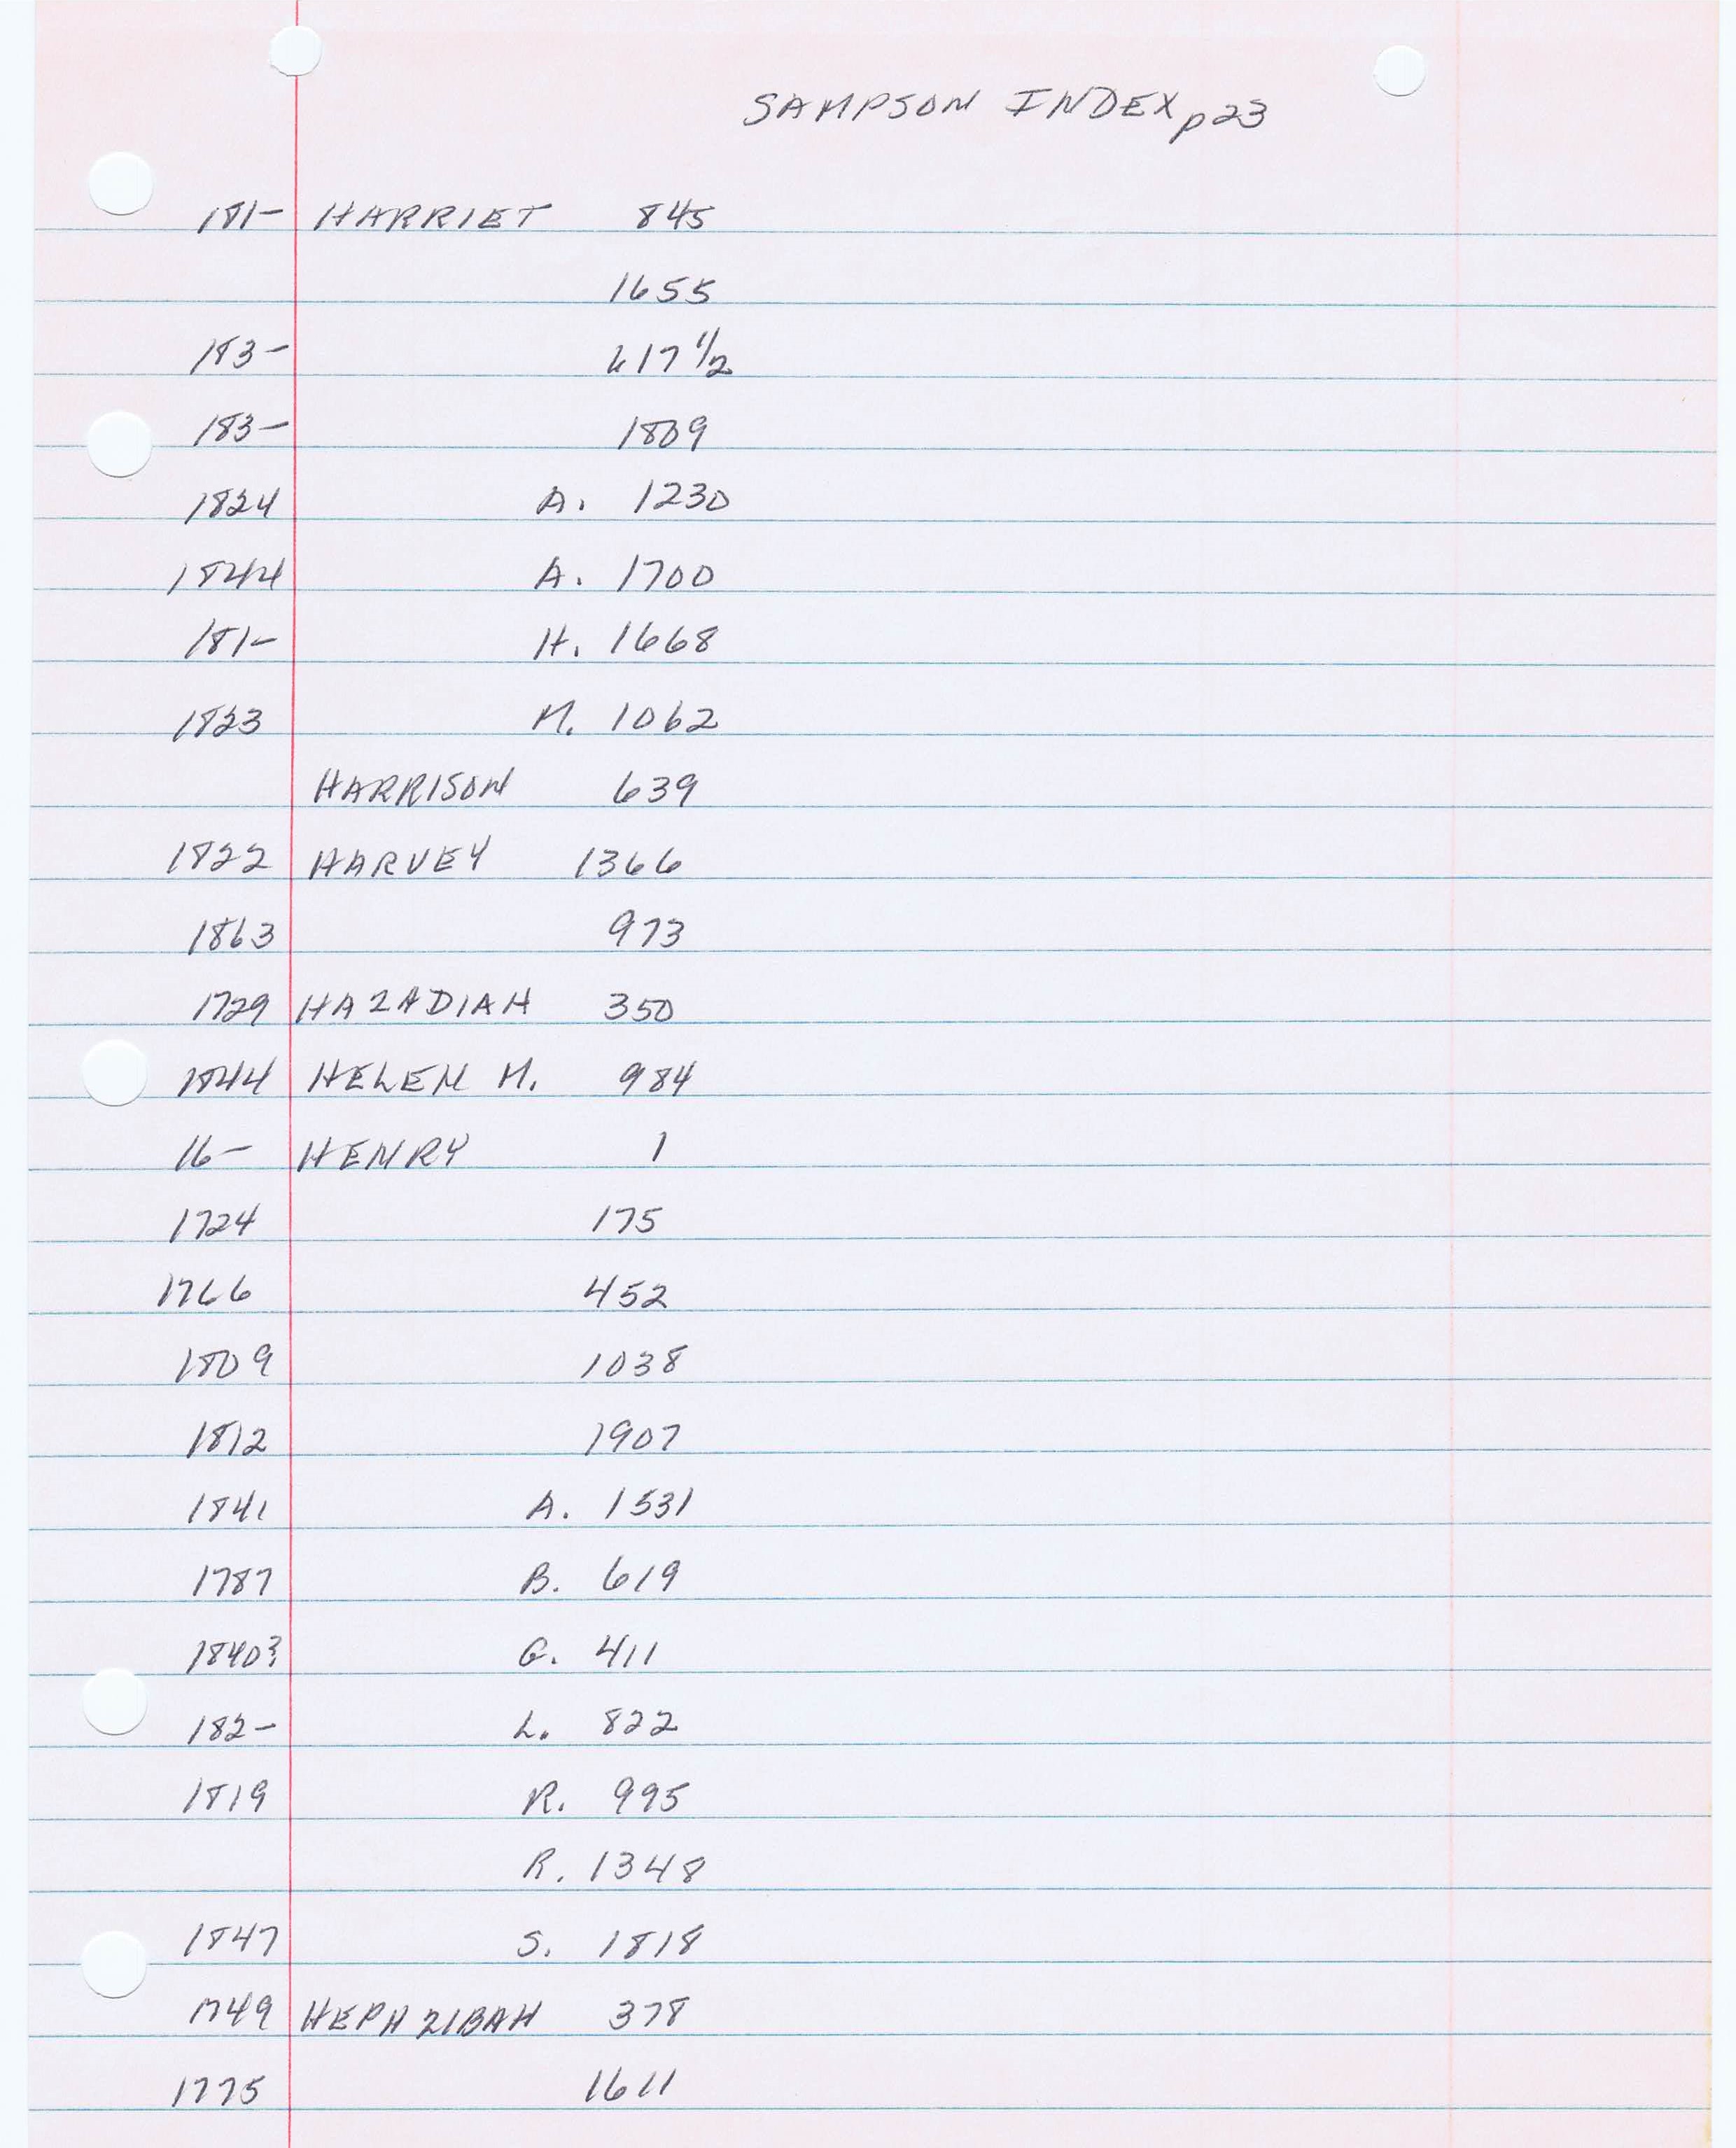 SAMPSON INDEX p23
181- HARRIET 845
1655
183- 617 1/2
183- 1809
1824 A. 1230
1844 A. 1700
181- H. 1668
1823 M. 1062
HARRISON 639
1822 HARVEY 1366
1863 973
1729 HAZADIAH 350
1844 HELEN M. 984
16- HENRY 1
1724 175
1766 452
1809 1038
1812 1907
1841 A. 1531
1787 B. 619
1840? G. 411
182- L. 822
1819 R. 995
R. 1348
1847 S. 1818
1749 HEPHZIBAH 378
1775 1611